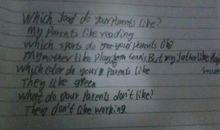 Which food do your Parents like?
My Parents like reading
Which sports do your Parents like
My mother like Play tennis But my father like
Which color do your Parents like
They like green
What do your Parents don't like?
They don't like working